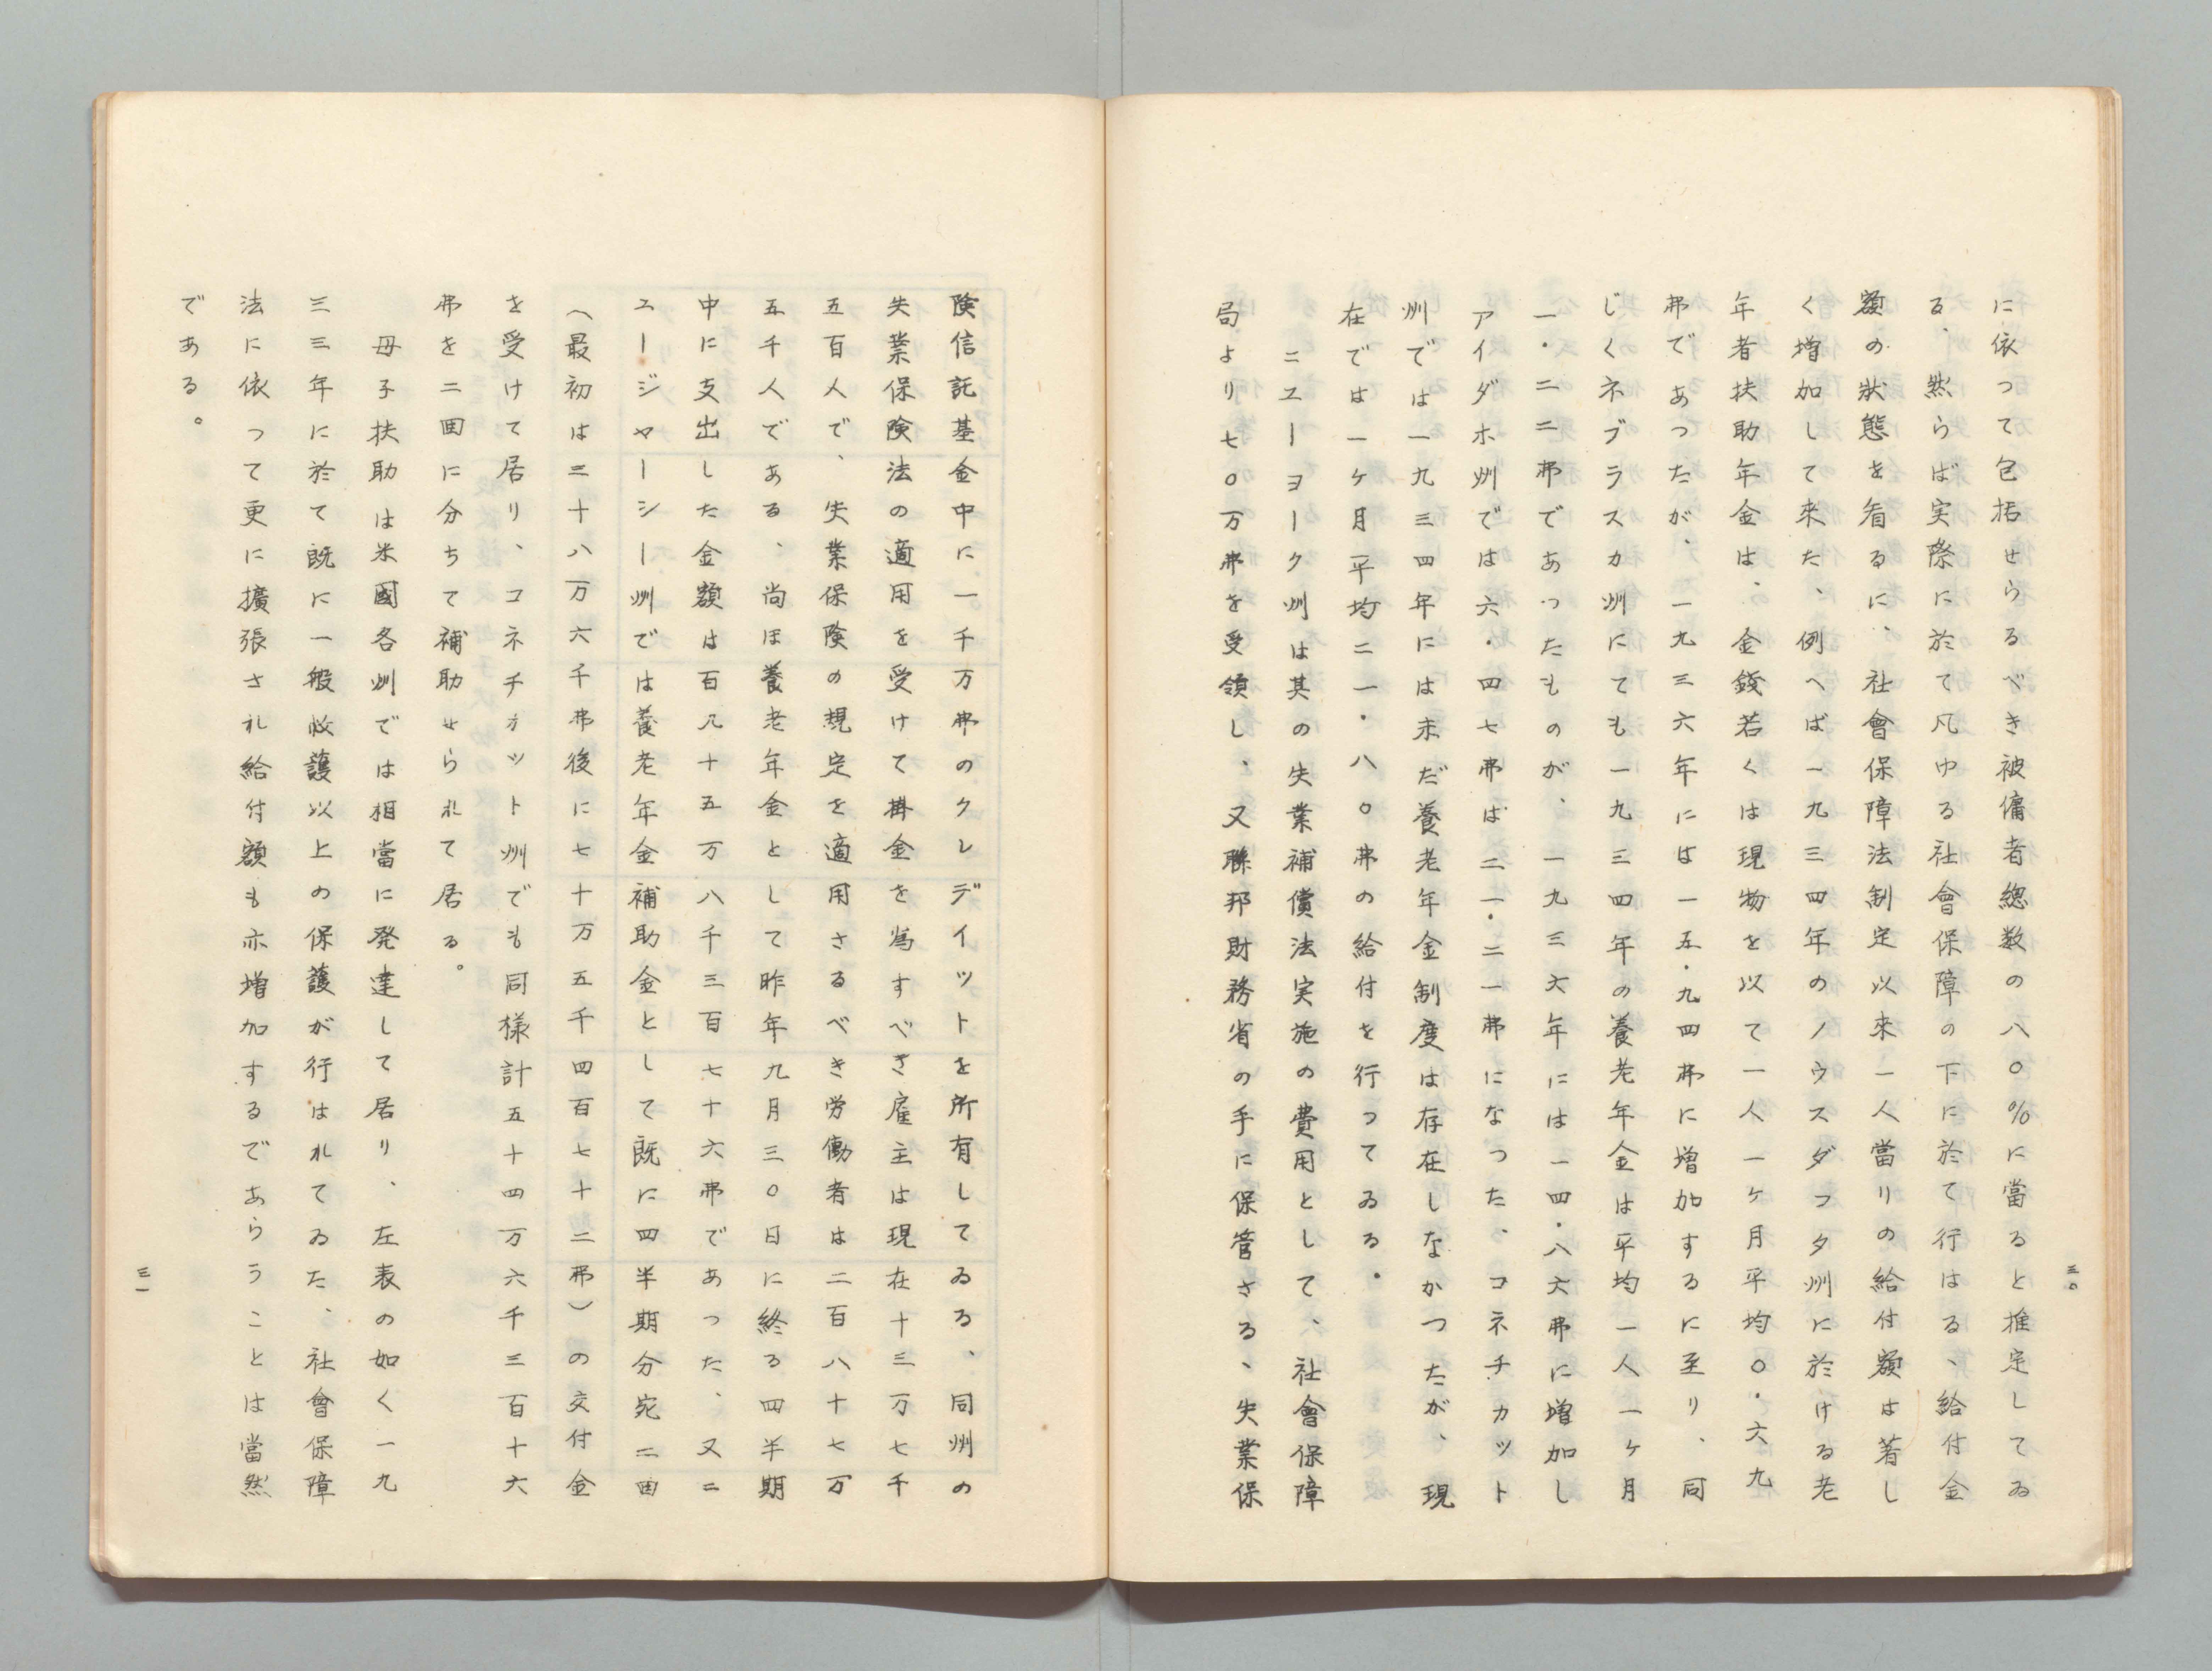 に依って包括せらるべき被傭者總数の八〇％に當ると推定してゐ
る、然らば実際に於て凡ゆる社會保障の下に於て行はる、給付金
額の狀態を看るに、社會保障法制定以來一人當りの給付額は著し
く増加して来た、例へば一九三四年のノウスダコタ州に於ける老
年者扶助年金は、金錢若くは現物を以て一人一ヶ月平均〇・六九
弗であったが、一九三六年には一五・九四弗に増加するに至り、同
じくネブラスカ州にても一九三四年の養老年金は平均一人一ヶ月
一・二二弗であったものが、一九三六年には一四・八六弗に増加し
アイダホ州では六・四七弗ば二一・二一弗になつた、コネチカット
州では一九三四年には未だ養老年金制度は存在しなかつたが、現
在では一ヶ月平均二一・八〇弗の給付を行つてゐる・
ニユーヨーク州は其の失業補償法実施の費用として、社會保障
局より七〇万弗を受領し、又聯邦財務省の手に保管さる、失業保
三〇
険信託基金中に一千万弗のクレデイットを所有してゐる、同州の
失業保険法の適用を受けて掛金を為すべき雇主は現在十三万七千
五百人で、失業保険の規定を適用さるべき労働者は二百八十七万
五千人である、尚ほ養老年金として昨年九月三〇日に終る四半期
中に支出した金額は百九十五万八千三百七十六弗であった、又ニ
ユージャーシー州では養老年金補助金として既に四半期分宛二回
（最初は三十八万六千弗後に七十万五千四百七十二弗）の交付金
を受けて居り、コネチカット州でも同様計五十四万六千三百十六
弗を二回に分ちて補助せられて居る。
母子扶助は米國各州では相當に発達して居り、左表の如く一九
三三年に於て既に一般救護以上の保護が行はれてゐた、社會保障
法に依って更に擴張され給付額も亦増加するであらうことは當然
である。
三一